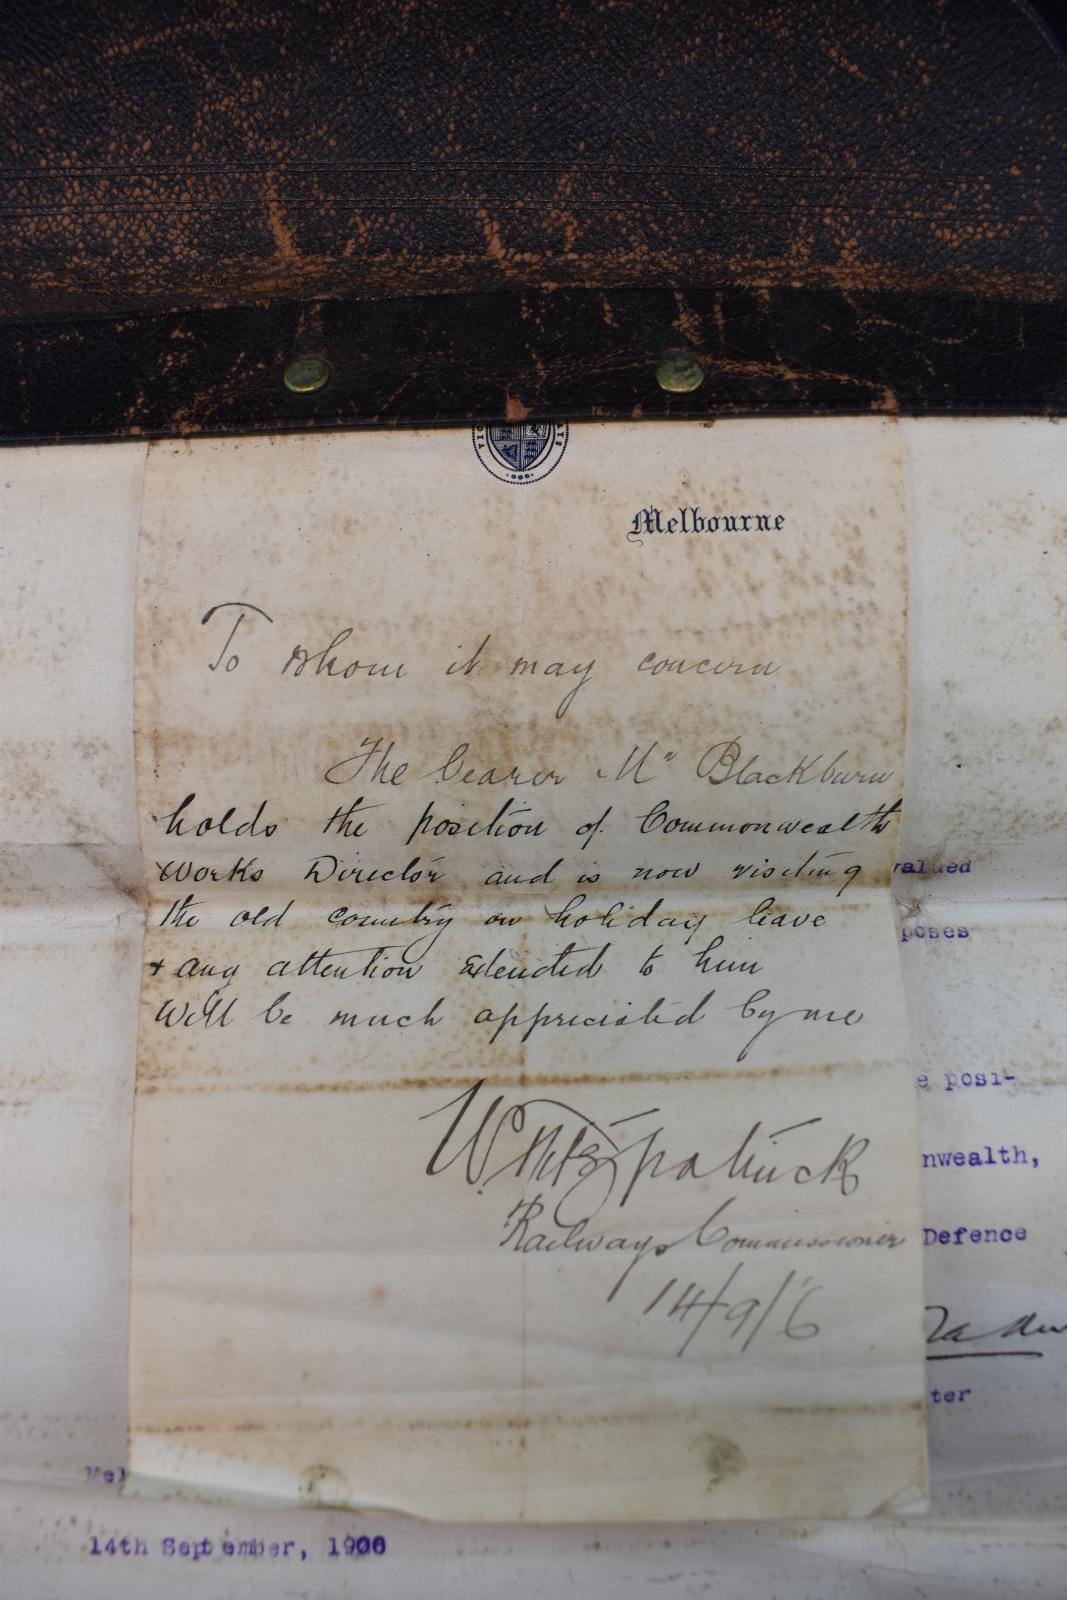 Melbourne
To whom it may concern
The bearer Mr Blackburn
holds the position of Commonwealth
Works Director and is now visiting
the old country on holiday leave
+ any attention extended to him
will be much appreciated by me
W. Fitzpatrick
Railways Commissioner
14/9/6
valued
poses
e posi-
nwealth,
Defence
ter
Mel
14th September, 1906